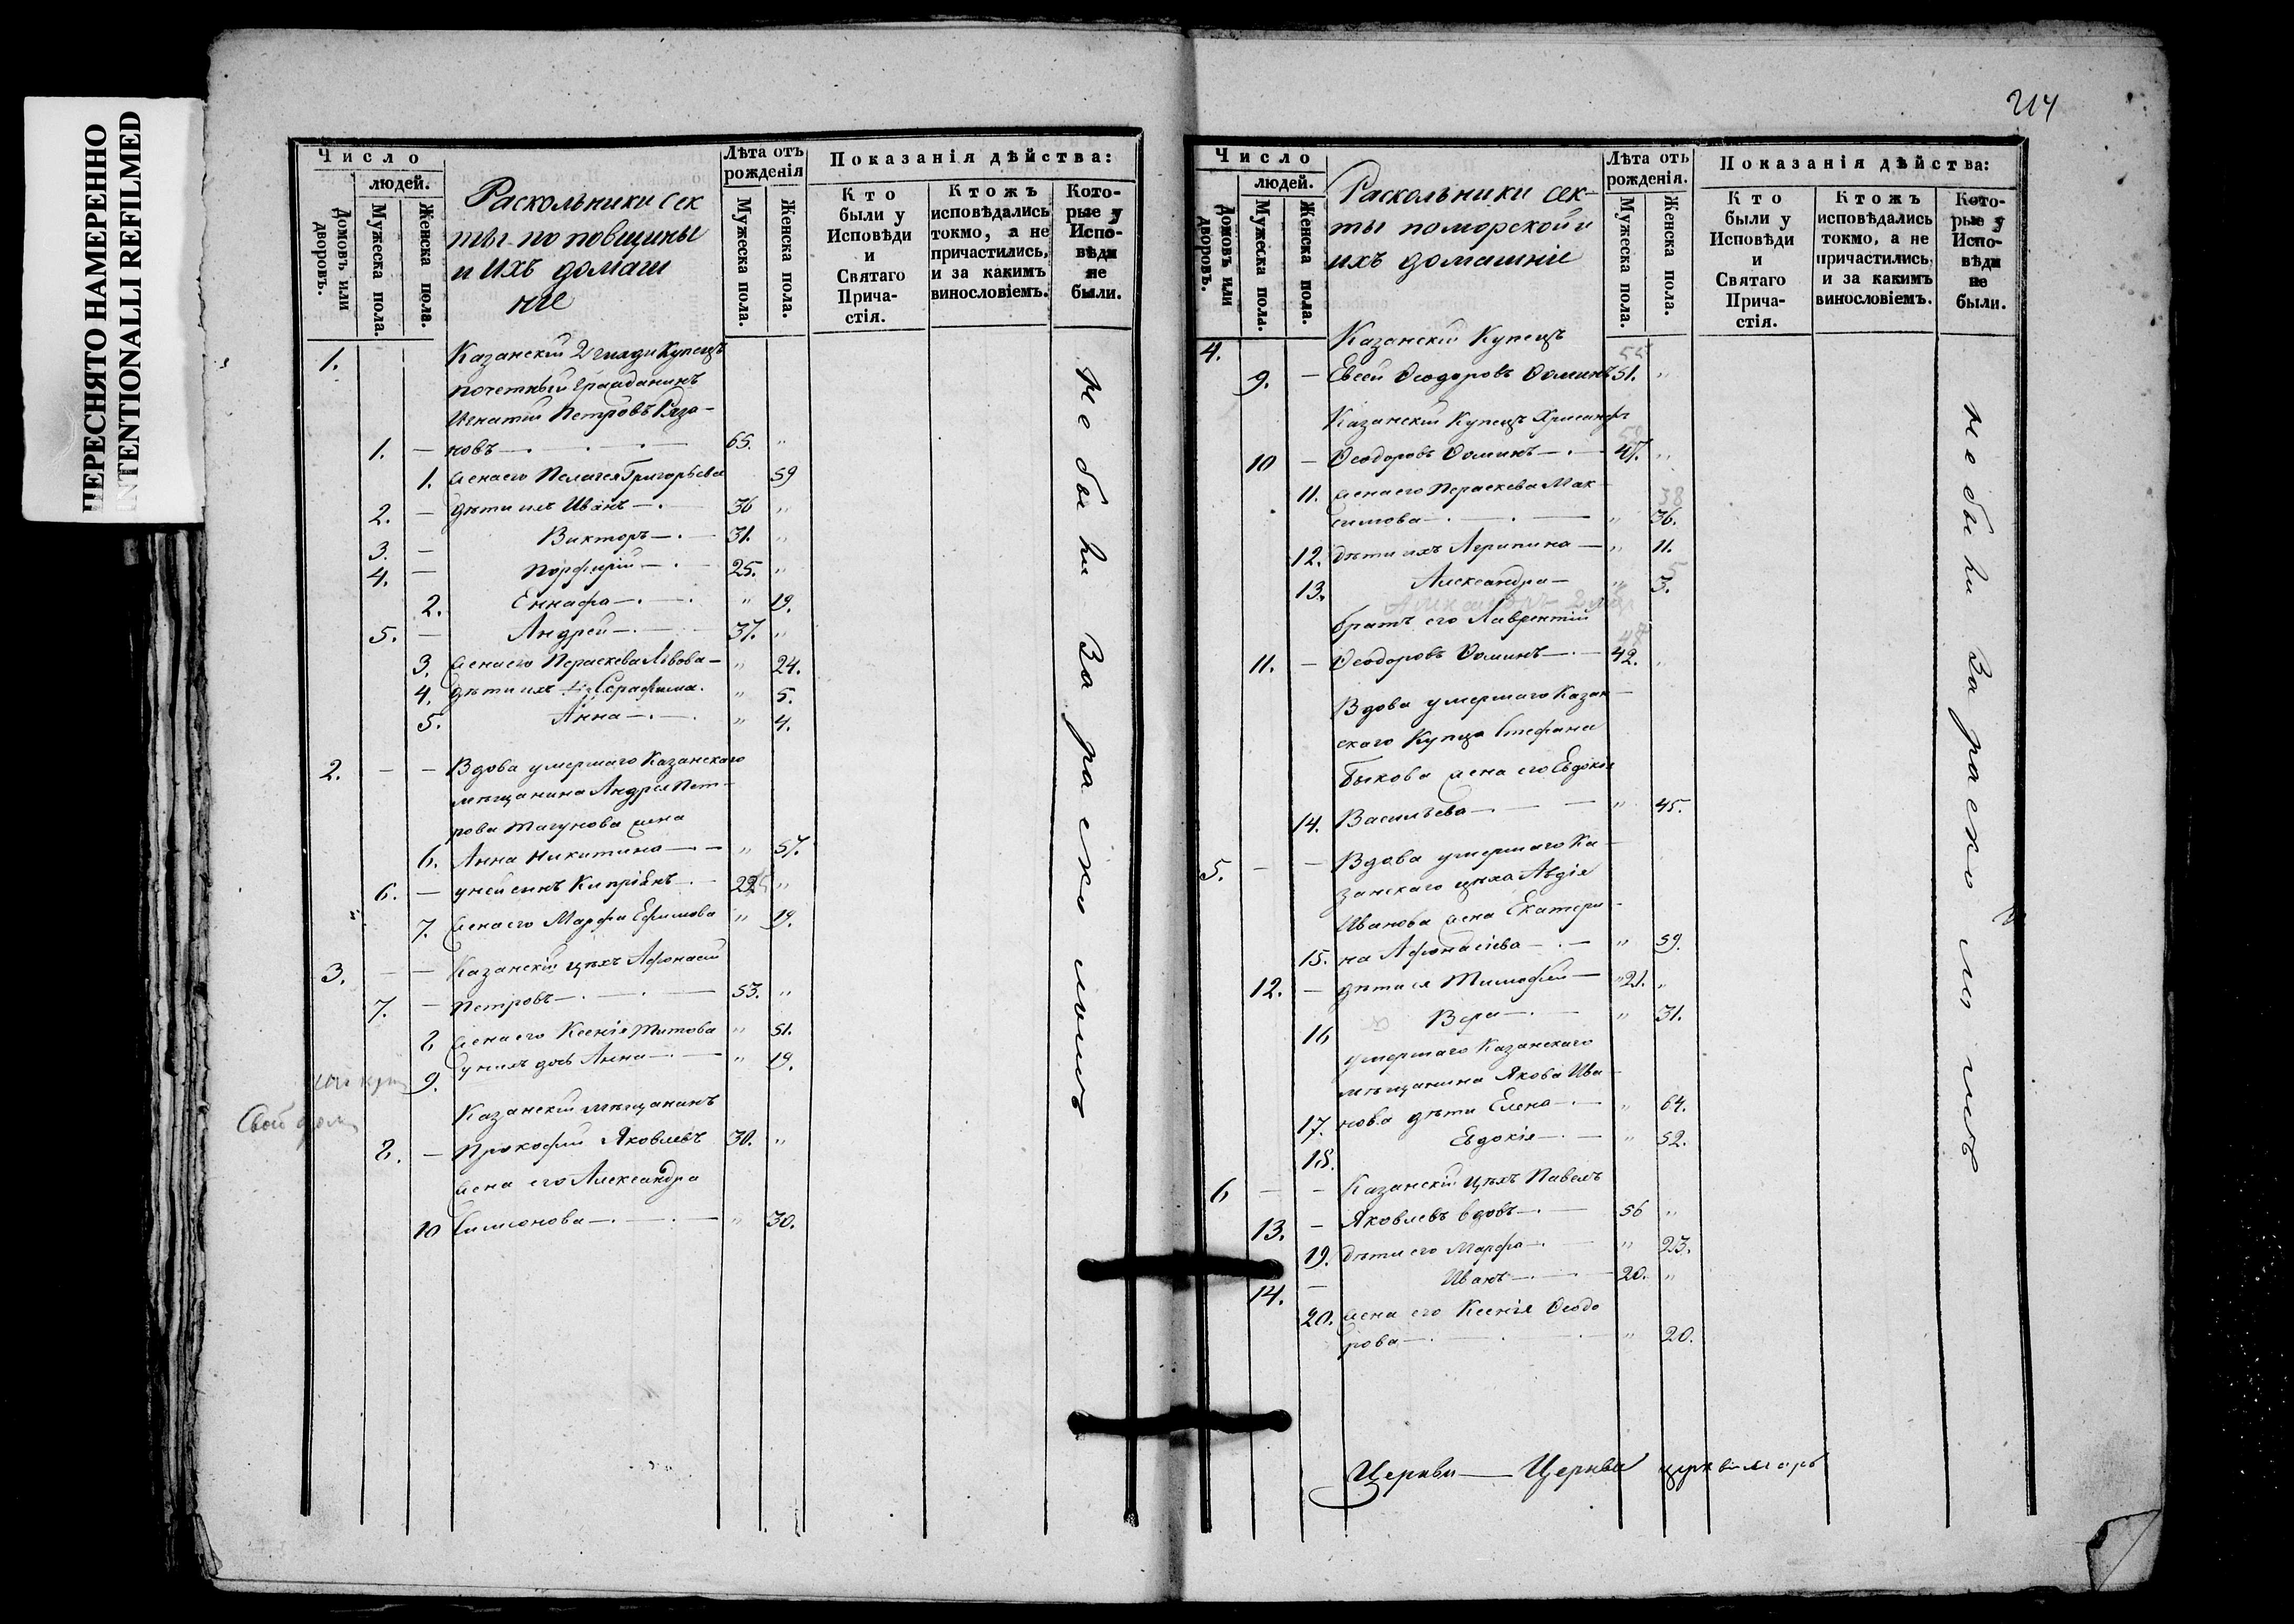 ПЕРЕСНЯТО НАМЕРЕННО
INTENTIONALLI REFILMED
Число
людей.
Домовъ или дворовъ.
Мужеска пола.
Женска пола.
Раскольники сек
ты поповщины
и Ихъ домаш
ніе
Лѣта отъ рожденія
Мужеска пола.
Женска пола.
Показанія дѣйства:
Кто были у Исповѣди и Святаго Причастія.
Ктожъ исповѣдались токмо, а не причастились, и за какимъ винословіемъ.
Которые у Исповѣди не были.
1. Казанскій 2 гильди Купецъ
почетный Гражданинъ
Игнатій Петровъ Ряза-
1. — новъ — 65. "
1. жена его Пелагея Григорьева 59
2. — дѣти ихъ Иванъ — 36 "
3. — Викторъ — 31. "
4. — Порфирій — 25. "
2. Еннафа — " 19.
5. — Андрей — 37. "
3. жена его Параскева Львова — " 24.
4. дѣти ихъ Серафима. " 5.
5. Анна — " 4.
2. — — Вдова умершаго Казанскаго
мѣщанина Андрея Пет-
рова жена
6. Анна Никитина — " 57.
6. — у ней сынъ Кипріянъ — 22. "
7. жена его Марфа Ефимова " 19.
3. — — Казанскій цѣхъ Афонасій
7. — Петровъ — 53. "
8 жена его Ксенія Титова " 51.
9. у нихъ дочь Анна — " 19.
Казанскій мѣщанинъ
Свой домъ
8. — Прокофій Яковлевъ 30. "
жена его Александра
10 Симионова — " 30.
не были за расколомъ
214
Число
людей.
Домовъ или дворовъ.
Мужеска пола.
Женска пола.
Раскольники сек-
ты поморской и
ихъ домашніе
Лѣта отъ рожденія.
Мужеска пола.
Женска пола.
Показанія дѣйства:
Кто были у Исповѣди и Святаго Причастія.
Ктожъ исповѣдались токмо, а не причастились, и за какимъ винословіемъ.
Которые у Исповѣди не были.
4. Казанскій Купецъ
9. — Евсей Ѳеодоровъ Ѳоминъ 51. "
Казанскій Купецъ Хрисанфъ
10 — Ѳеодоровъ Ѳоминъ — 47. "
11. жена его Параскева Мак-
38
симова — " 36.
12. дѣти ихъ Агрипина — " 11.
5
13. Александра — " 3.
братъ его Лаврентій
11. — Ѳеодоровъ Ѳоминъ — 42. "
Вдова умершаго Казан-
скаго Купца Стефана
Быкова жена его Евдокія
14. Васильева — " 45.
5. — — Вдова умершаго Ка-
занскаго цѣха Авдія
Иванова жена Екатери-
15. на Афонасіева — " 59.
12. — дѣти ея Тимофей — 21. "
16 Вера — " 31.
умершаго Казанскаго
мѣщанина Якова Ива-
17. нова дѣти Елена — " 64.
18. Евдокія — " 52.
6 — — Казанскій цѣхъ Павелъ
13. — Яковлевъ вдовъ — 56 "
19. дѣти его Марфа — " 23.
14. — Иванъ — 20. "
20. жена его Ксенія Ѳеодо
рова — " 20.
не были за расколомъ
Церкви — Церкви